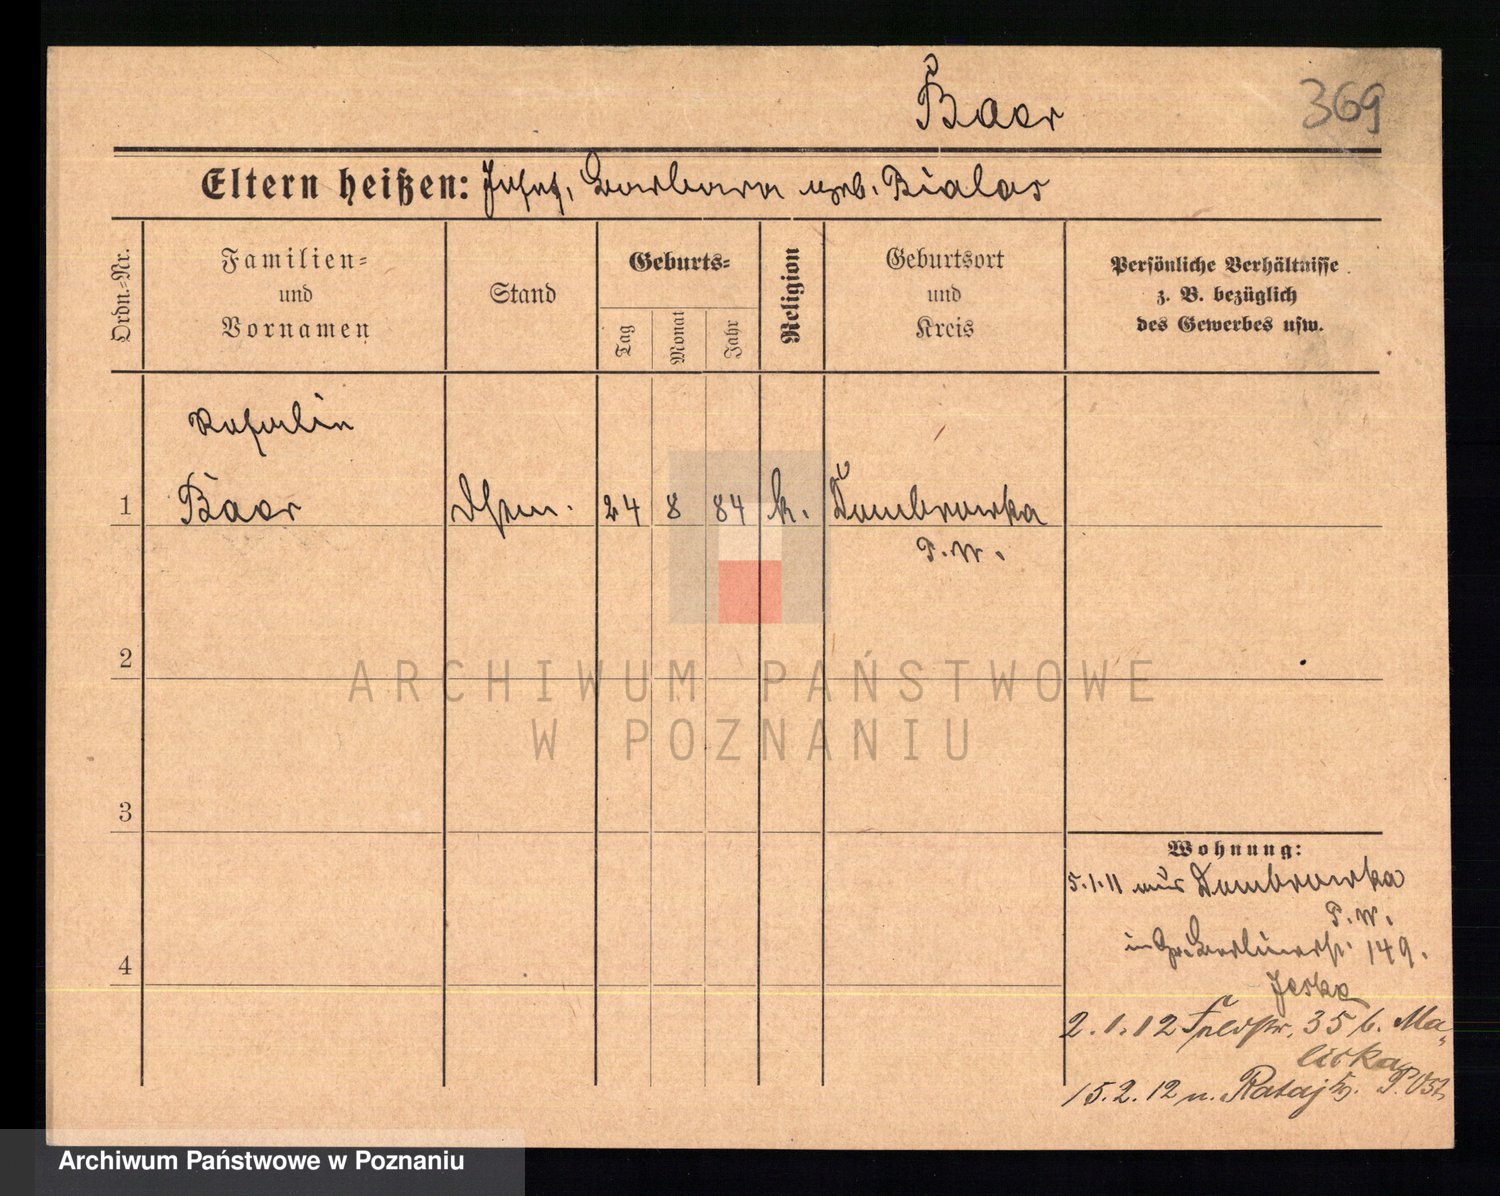 Baar
369
Eltern heißen: Josef, Barbara geb. Bialas
Ordn.-Nr.
Familien-
und
Vornamen
Stand
Geburts-
Tag
Monat
Jahr
Religion
Geburtsort
und
Kreis
Persönliche Verhältnisse
z. B. bezüglich
des Gewerbes usw.
Katalin
1
Baar
24
8
84
k.
Dombrowka
P. W.
2
3
4
Wohnung:
5.1.11 aus Dombrowka
P. W.
in Gr. Berlinerstr. 149.
Jeska
2.1.12 Feldstr. 35 b. Ma-
liska
15.2.12 n. Rataj P. Ost
ARCHIWUM PAŃSTWOWE
W POZNANIU
Archiwum Państwowe w Poznaniu